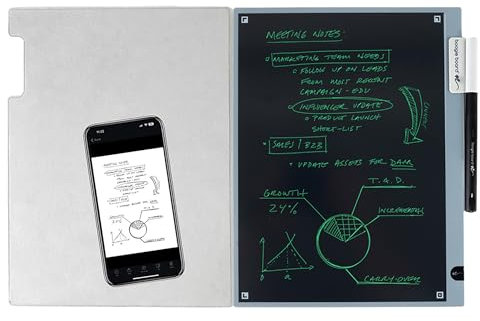 MEETING NOTES:
MARKETING TEAM NEEDS
FOLLOW UP ON LEADS
FROM MOST RECENT
CAMPAIGN - EDU
INFLUENCER UPDATE
PRODUCT LAUNCH
SHORT-LIST
SALES / B2B
UPDATE ASSETS FOR
T.B.D.
GROWTH
24%
INCREMENTAL
CARRY-OVER
boogie board
11:22